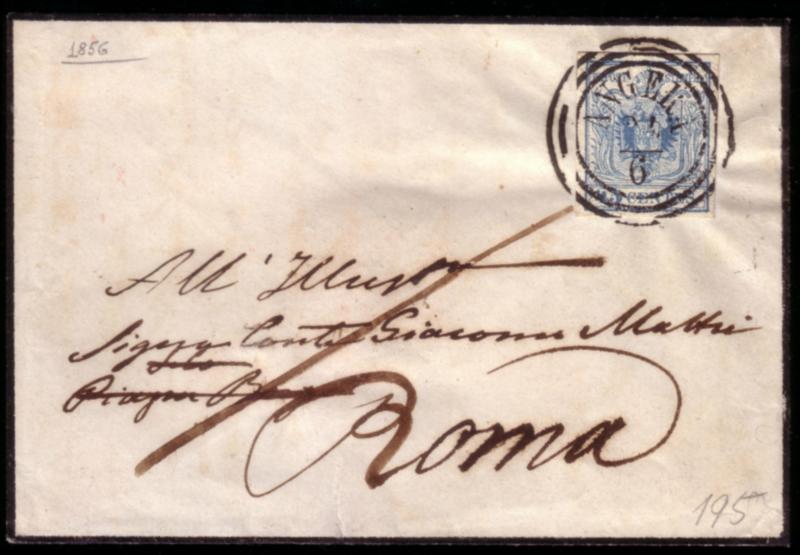 1856
ANGELI
6
All' Illust
Sigr Conte Giacomo Mattei
Piazza
Roma
195